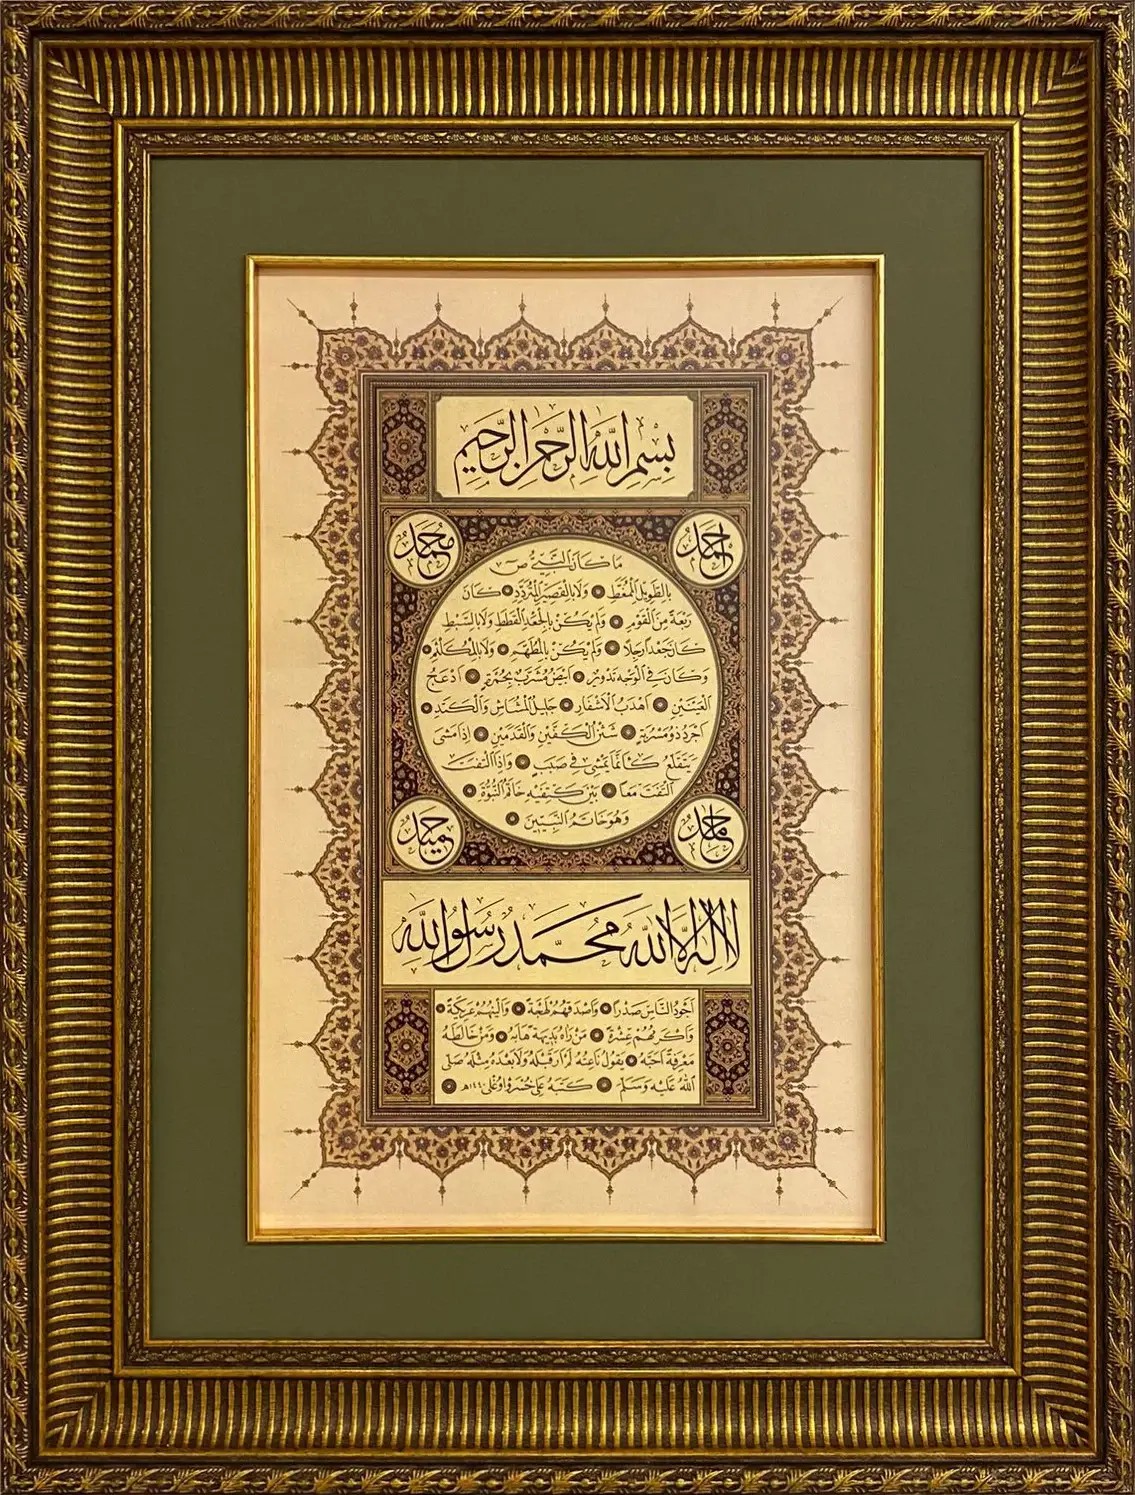 بِسْمِ اللَّهِ الرَّحْمٰنِ الرَّحِيمِ
احمد
محمد
مَا كَانَ النَّبِيُّ ص
بِالطَّوِيلِ الْمُمَّغِطِ وَلَا بِالْقَصِيرِ الْمُتَرَدِّدِ كَانَ
رَبْعَةً مِنَ الْقَوْمِ وَلَمْ يَكُنْ بِالْجَعْدِ الْقَطَطِ وَلَا بِالسَّبِطِ
كَانَ جَعْدًا رَجِلًا وَلَمْ يَكُنْ بِالْمُطَهَّمِ وَلَا بِالْمُكَلْثَمِ
وَكَانَ فِي الْوَجْهِ تَدْوِيرٌ اَبْيَضُ مُشْرَبٌ بِحُمْرَةٍ اَدْعَجُ
الْعَيْنَيْنِ اَهْدَبُ الْاَشْفَارِ جَلِيلُ الْمُشَاشِ وَالْكَتَدِ
اَجْرَدُ ذُو مَسْرُبَةٍ شَثْنُ الْكَفَّيْنِ وَالْقَدَمَيْنِ اِذَا مَشَى
يَتَقَلَّعُ كَاَنَّمَا يَمْشِي فِي صَبَبٍ وَاِذَا الْتَفَتَ
الْتَفَتَ مَعًا بَيْنَ كَتِفَيْهِ خَاتَمُ النُّبُوَّةِ
وَهُوَ خَاتَمُ النَّبِيِّينَ
حميد
لَا اِلٰهَ اِلَّا اللَّهُ مُحَمَّدٌ رَسُولُ اللَّهِ
اَجْوَدُ النَّاسِ صَدْرًا وَاَصْدَقُهُمْ لَهْجَةً وَاَلْيَنُهُمْ عَرِيكَةً
وَاَكْرَمُهُمْ عِشْرَةً مَنْ رَاٰهُ بَدِيهَةً هَابَهُ وَمَنْ خَالَطَهُ
مَعْرِفَةً اَحَبَّهُ يَقُولُ نَاعِتُهُ لَمْ اَرَ قَبْلَهُ وَلَا بَعْدَهُ مِثْلَهُ صَلَّى
اللَّهُ عَلَيْهِ وَسَلَّمَ كَتَبَهُ عَلِي خُسْرَوْ اوُغْلِى